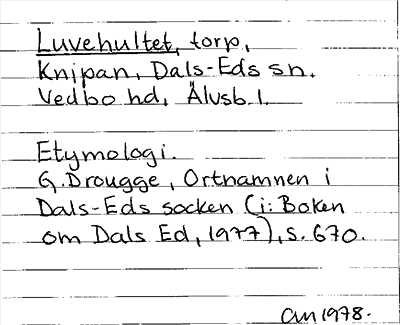 Luvehultet, torp,
Knipan, Dals-Eds sn.
Vedbo hd, Älvsb. l.
Etymologi.
G. Drougge, Ortnamnen i
Dals-Eds socken (i: Boken
om Dals Ed, 1977), s. 670.
1978.